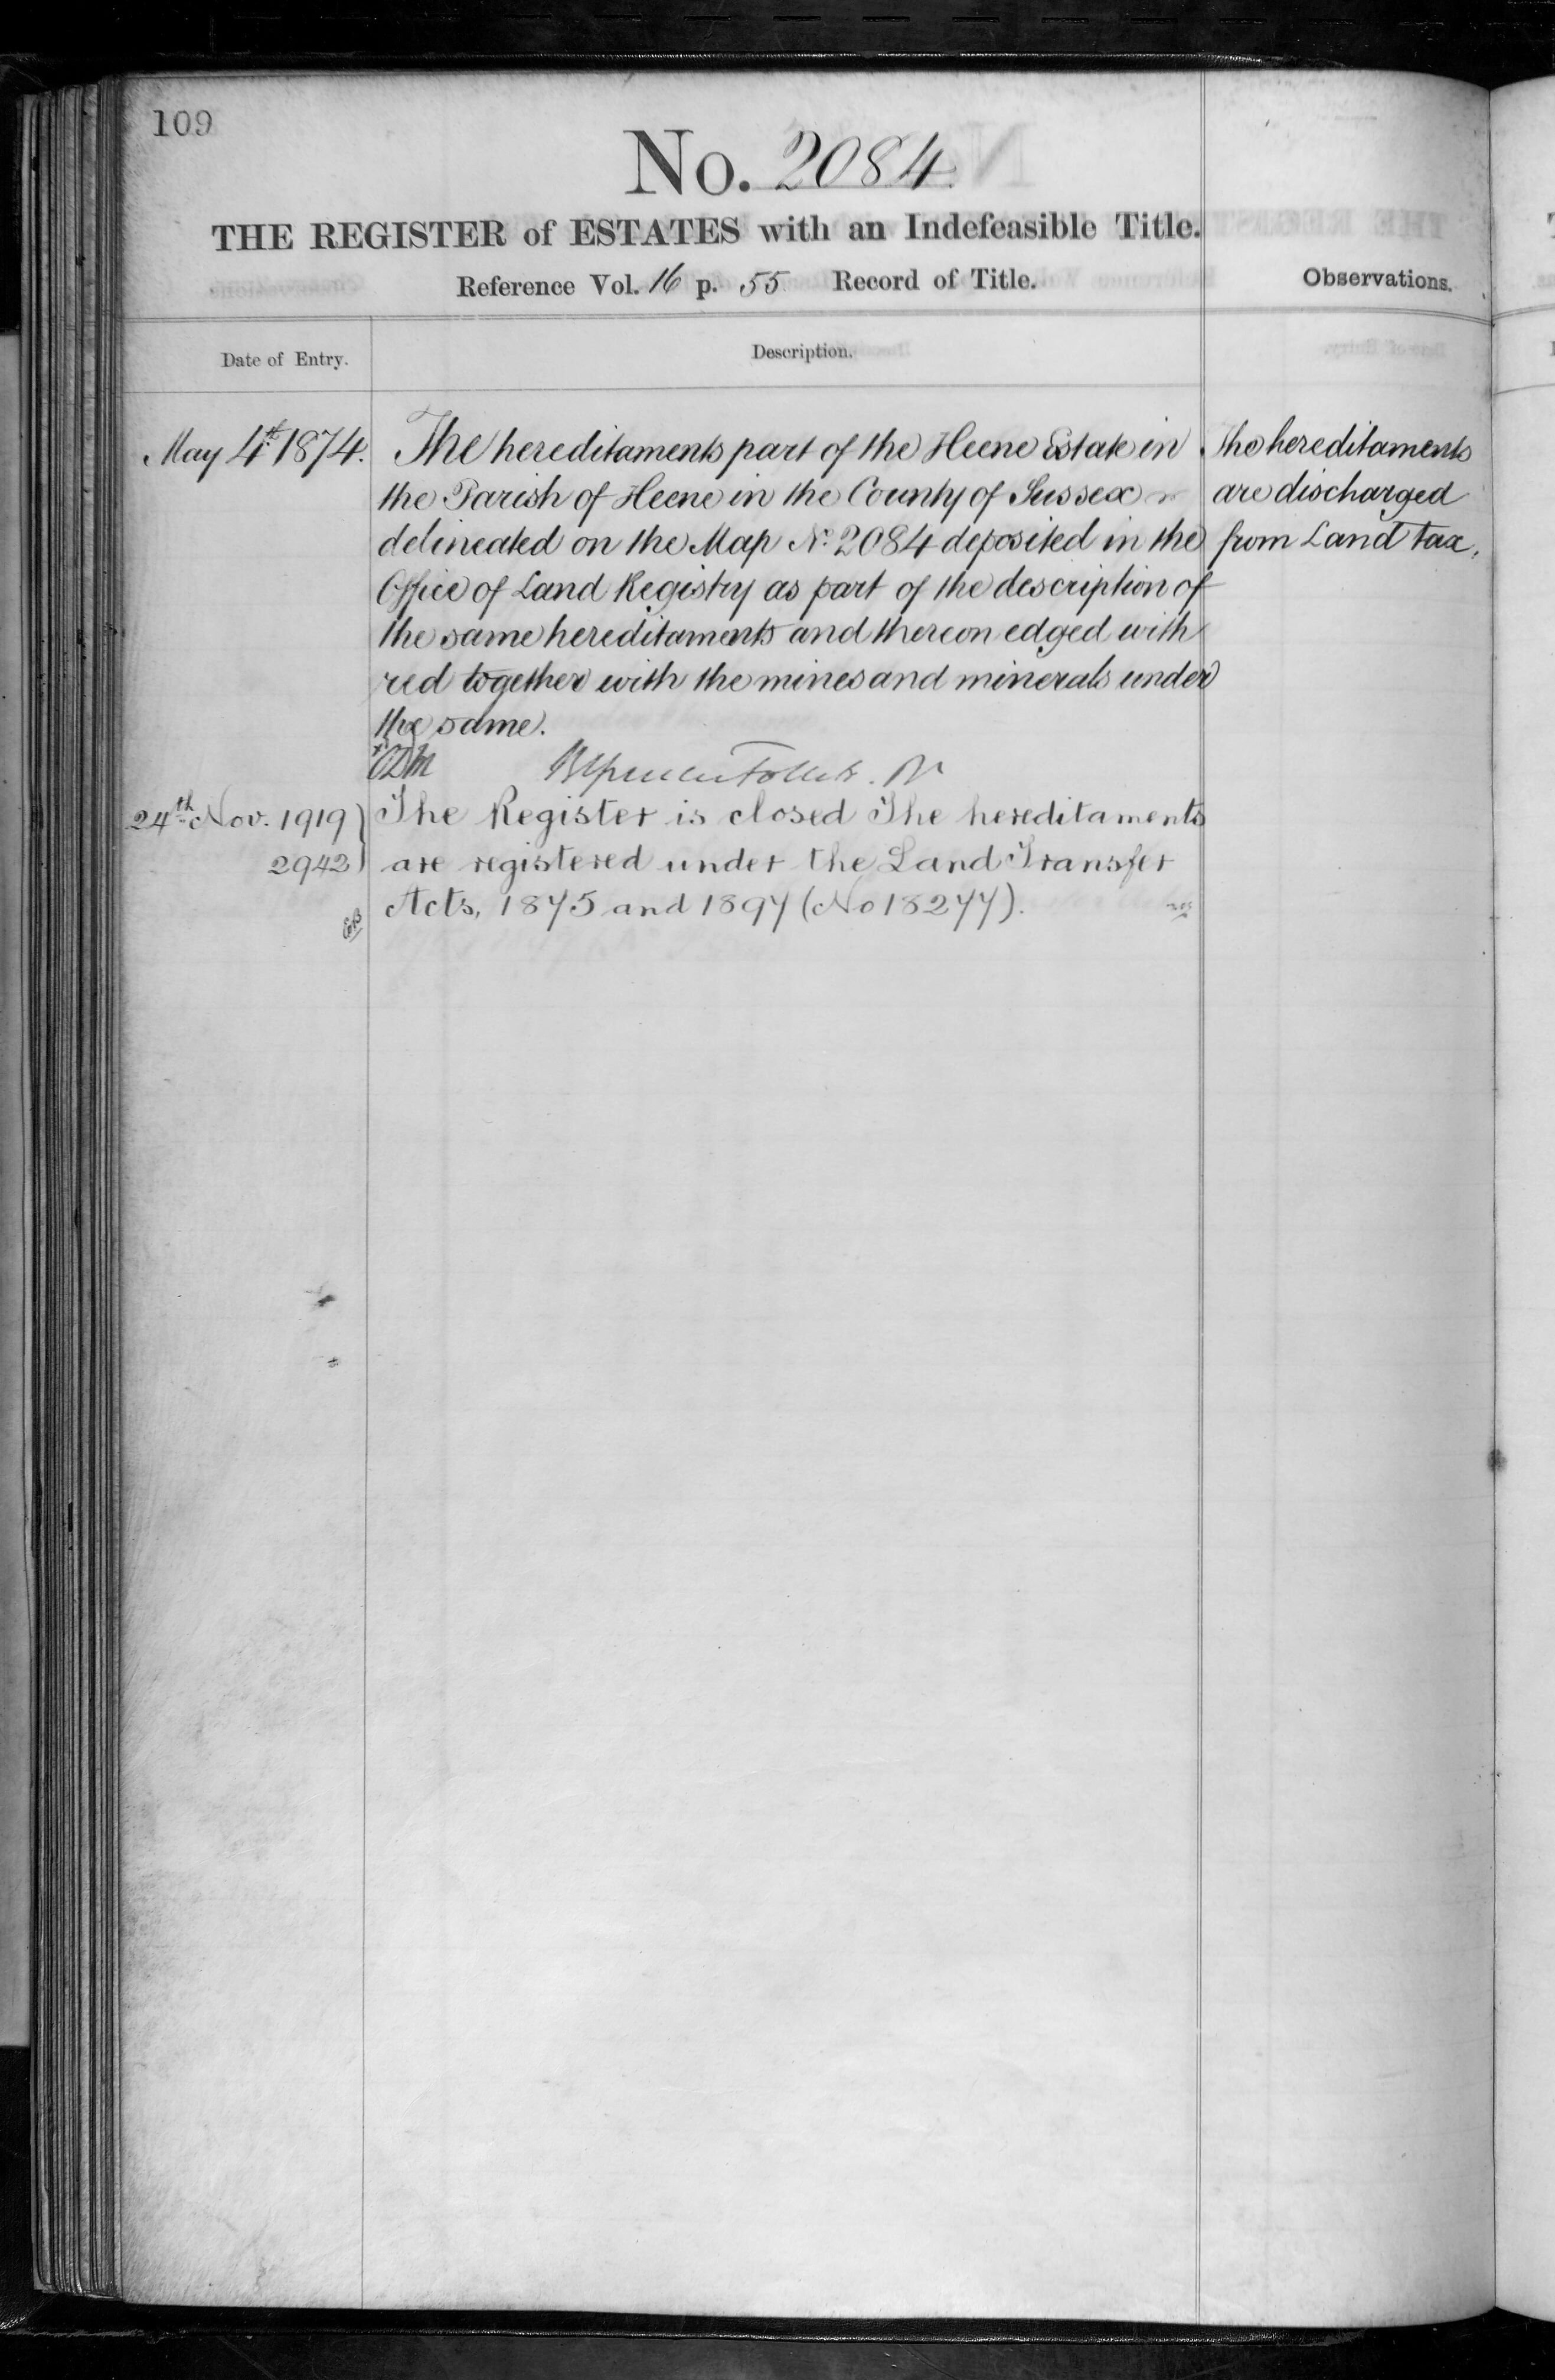 109
No. 2084
THE REGISTER of ESTATES with an Indefeasible Title.
Reference Vol. 16 p. 55 Record of Title.
Observations.
Date of Entry.
Description.
May 4th 1874.
The hereditaments part of the Heene Estate in
the Parish of Heene in the County of Sussex
delineated on the Map No. 2084 deposited in the
Office of Land Registry as part of the description of
the same hereditaments and thereon edged with
red together with the mines and minerals under
the same.
The hereditaments
are discharged
from Land tax.
24th Nov. 1919
2942
The Register is closed The hereditaments
are registered under the Land Transfer
Acts, 1875 and 1897 (No 18277).